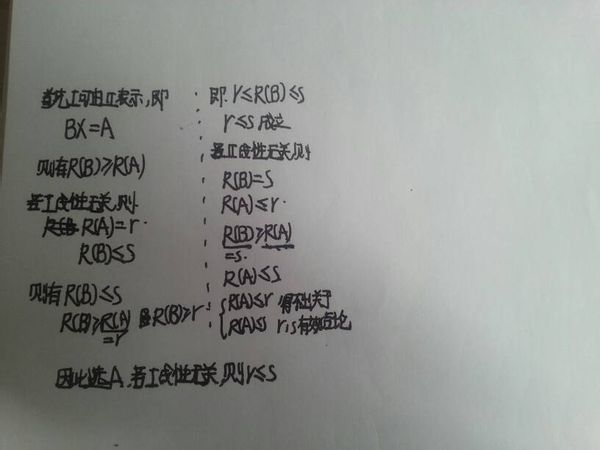 首先I可由II表示,即
BX=A
则有R(B)≥R(A)
若I线性无关,则
R(A)=r.
R(B)≤S
则有R(B)≤S
R(B)≥R(A) 且R(B)≥r
=r
即 r≤R(B)≤S
r≤s成立
若II线性无关,则
R(B)=S
R(A)≤r.
R(B)≥R(A)
=s.
R(A)≤S
R(A)≤r 得不出关于
R(A)≤s r,s有效结论
因此选A.若I线性无关,则r≤s